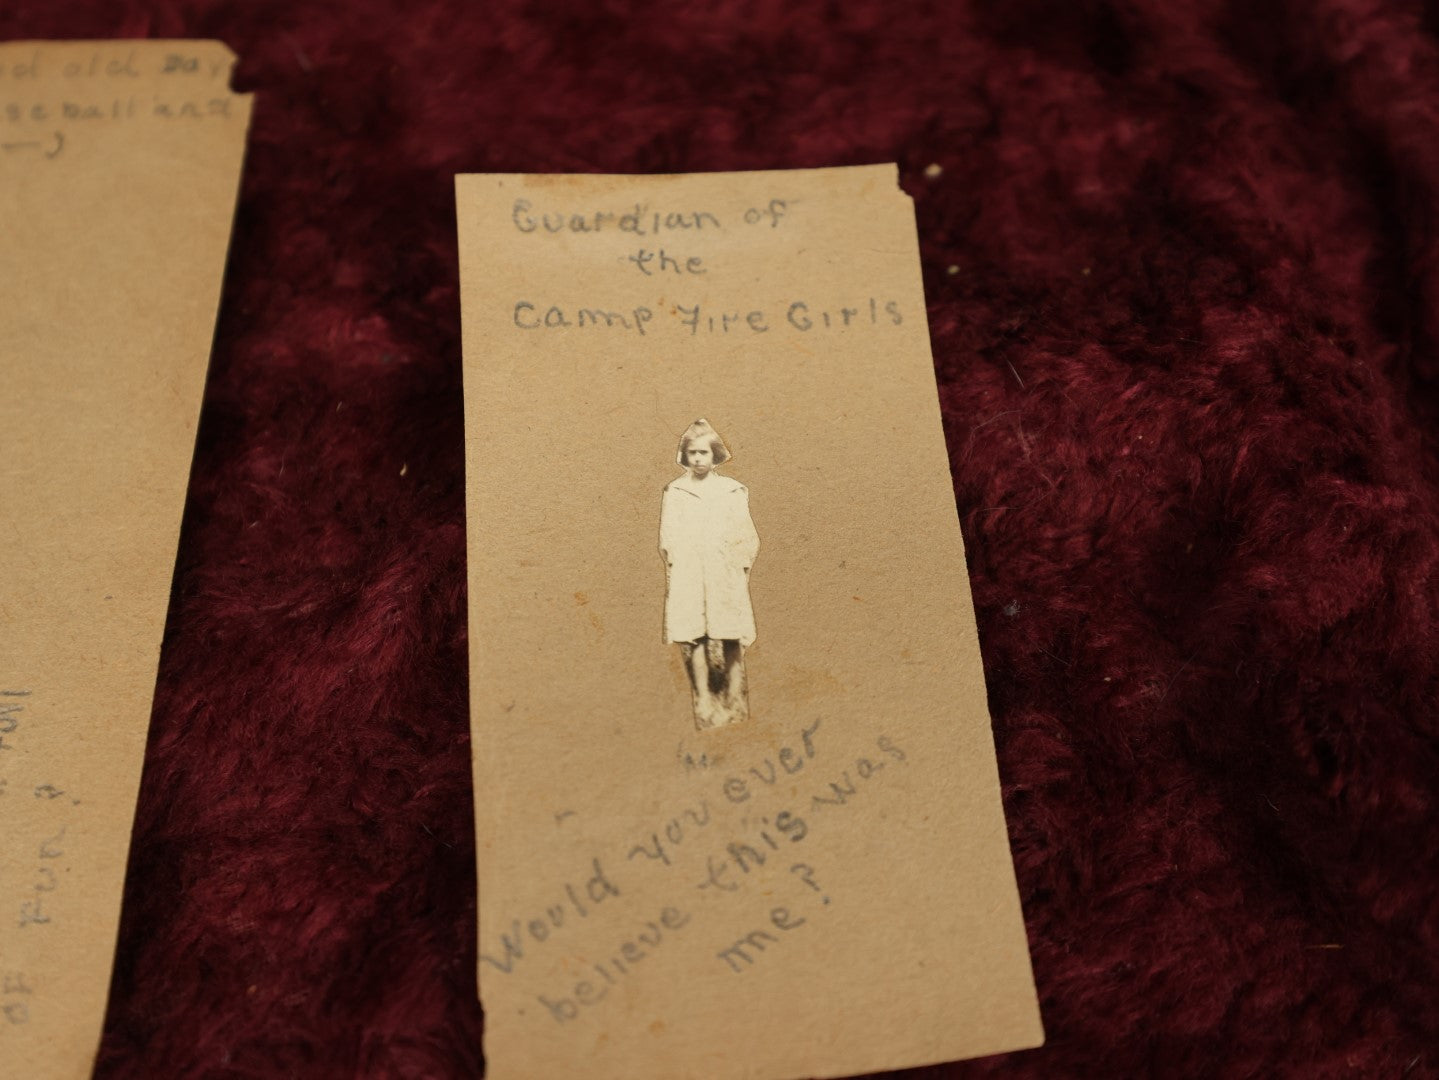 old Day
and
of Fun?
Guardian of
the
Camp Fire Girls
Would you ever
believe this was
me?